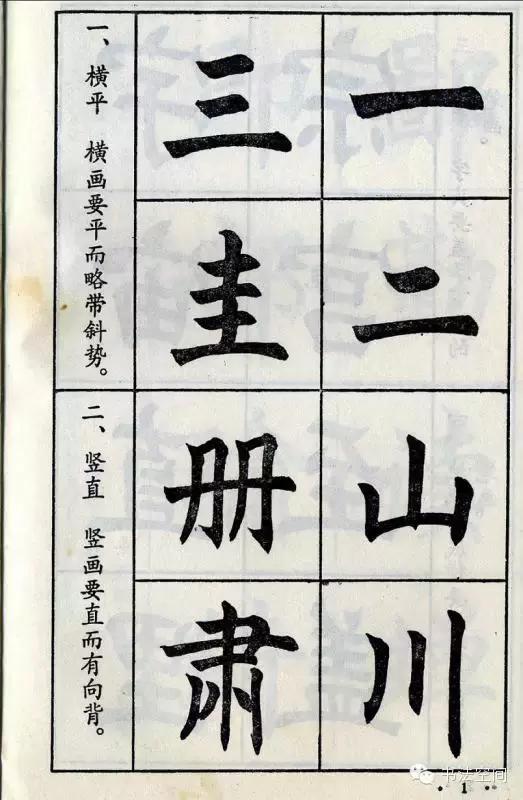 一
二
三
圭
一、横平 横画要平而略带斜势。
山
川
册
肃
二、竖直 竖画要直而有向背。
·1·
书法空间